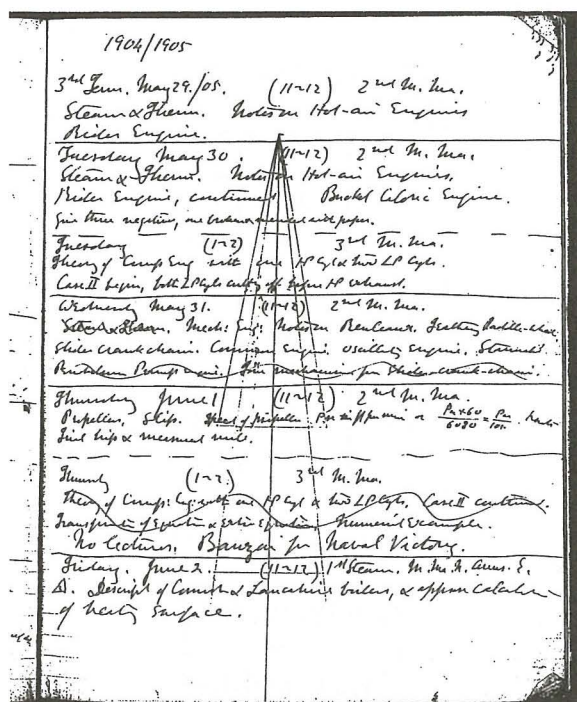 1904/1905
3rd Term. May 29./05. (11~12) 2nd M. Ma.
Steam & Therm. Notes on Hot-air Engines
Rider Engine.
Tuesday May 30. (11~12) 2nd M. Ma.
Steam & Therm. Notes on Hot-air Engines,
Rider Engine, continued Bucket Caloric Engine.
Give three negative, one and paper.
Tuesday (1~2) 3rd M. Ma.
Theory of Comp: Eng with one HP Cyl & two LP Cyls.
Case II begin, both LP Cyls cutting off before HP exhaust.
Wednesday May 31. (11~12) 2nd M. Ma.
Steam & Therm. Mech: Eng: Notes on Reuleaux. Paddle-
Slider crank chain. Common Engine. oscillating Engine,
Pump engine. mechanisms for Slider-crank-chain.
Thursday June 1 (11~12) 2nd M. Ma.
Propeller, Slip. Speed of propeller. Pn × 60 / 6080 = Pn /
Slip & measured mile.
Thursday (1~2) 3rd M. Ma.
Theory of Comp: Eng with one HP Cyl & two LP Cyls, Case II continued.
of Equation & Numerical Example.
No lectures. Banzai for Naval Victory.
Friday. June 2. (11~12) 1st Steam. M. Ma. N.
Δ. Descript of Cornish & Lancashire boilers, & approx Calculation
of heating Surface.